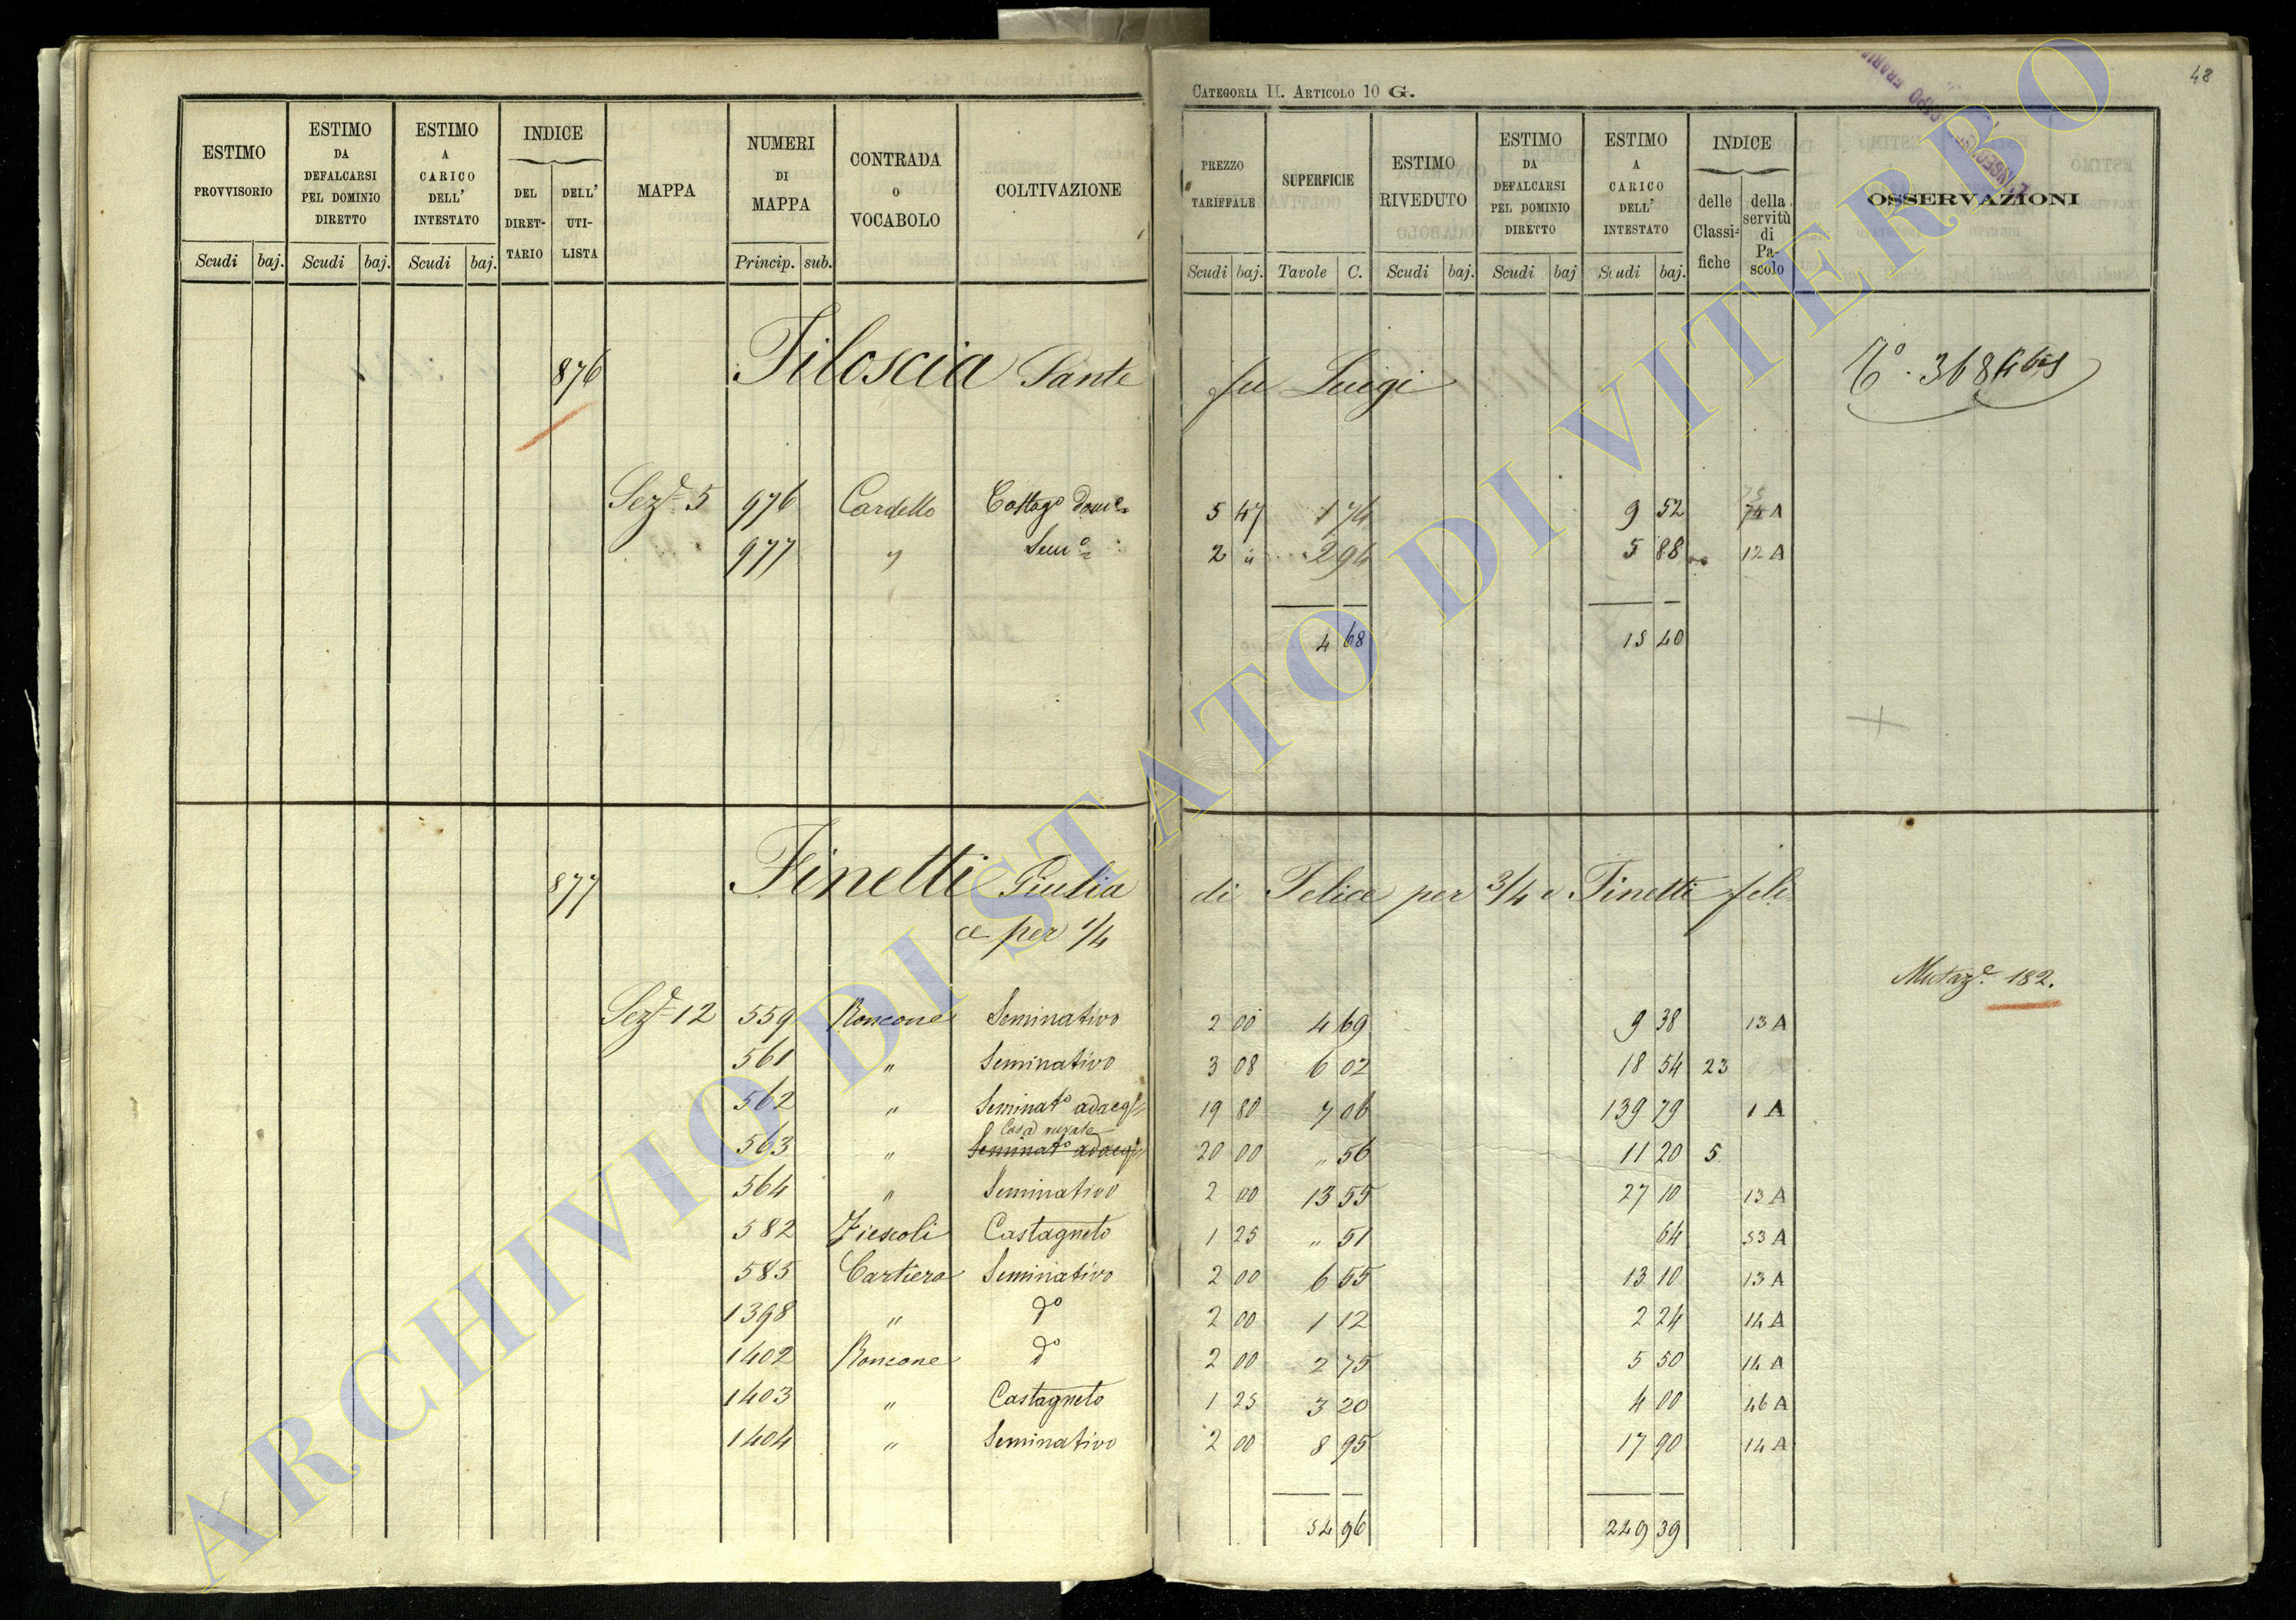 CATEGORIA II. ARTICOLO 10 G.
48
ESTIMO PROVVISORIO Scudi baj.
ESTIMO DA DEFALCARSI PEL DOMINIO DIRETTO Scudi baj.
ESTIMO A CARICO DELL' INTESTATO Scudi baj.
INDICE DEL DIRET-TARIO DELL' UTI-LISTA
MAPPA
NUMERI DI MAPPA Princip. sub.
CONTRADA o VOCABOLO
COLTIVAZIONE
PREZZO TARIFFALE Scudi baj.
SUPERFICIE Tavole C.
ESTIMO RIVEDUTO Scudi baj.
ESTIMO DA DEFALCARSI PEL DOMINIO DIRETTO Scudi baj
ESTIMO A CARICO DELL' INTESTATO Scudi baj.
INDICE delle Classi-fiche della servitù di Pa-scolo
OSSERVAZIONI
876 Filoscia Sante fu Luigi
Sez.e 5 976 Cardello 5 47 1 74 9 52 74 A
977 " Sem.o 2 " 2 94 5 88 12 A
4 68 15 40
877 Finetti Giulia di Felice per 3/4 e Finetti Feli-
ce per 1/4
Mutaz.e 182.
Sez.e 12 559 Roncone Seminativo 2 00 4 69 9 38 13 A
561 " Seminativo 3 08 6 02 18 54 23
562 " Seminat.o adacq. 19 80 7 06 139 79 1 A
Casa rurale
563 " Seminat.o adacq. 20 00 " 56 11 20 5
564 " Seminativo 2 00 13 55 27 10 13 A
582 Fiescoli Castagneto 1 25 " 51 64 53 A
585 Cartiera Seminativo 2 00 6 55 13 10 13 A
1398 " d.o 2 00 1 12 2 24 14 A
1402 Roncone d.o 2 00 2 75 5 50 14 A
1403 " Castagneto 1 25 3 20 4 00 46 A
1404 " Seminativo 2 00 8 95 17 90 14 A
54 96 249 39
ARCHIVIO DI STATO DI VITERBO